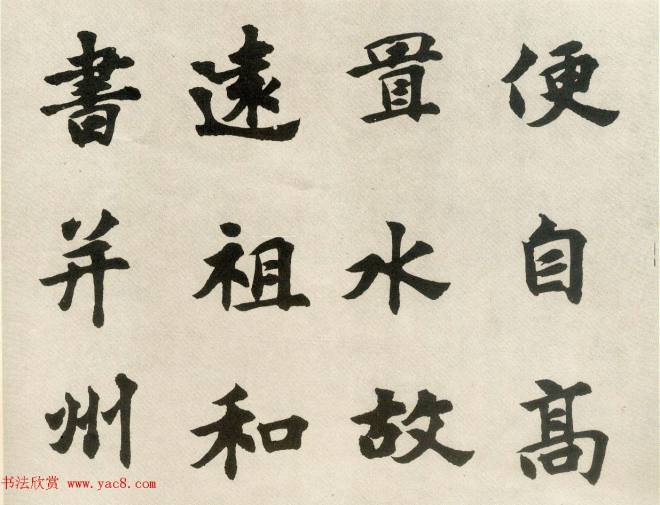 便自高
置水故
遠祖和
書并州
书法欣赏 www.yac8.com